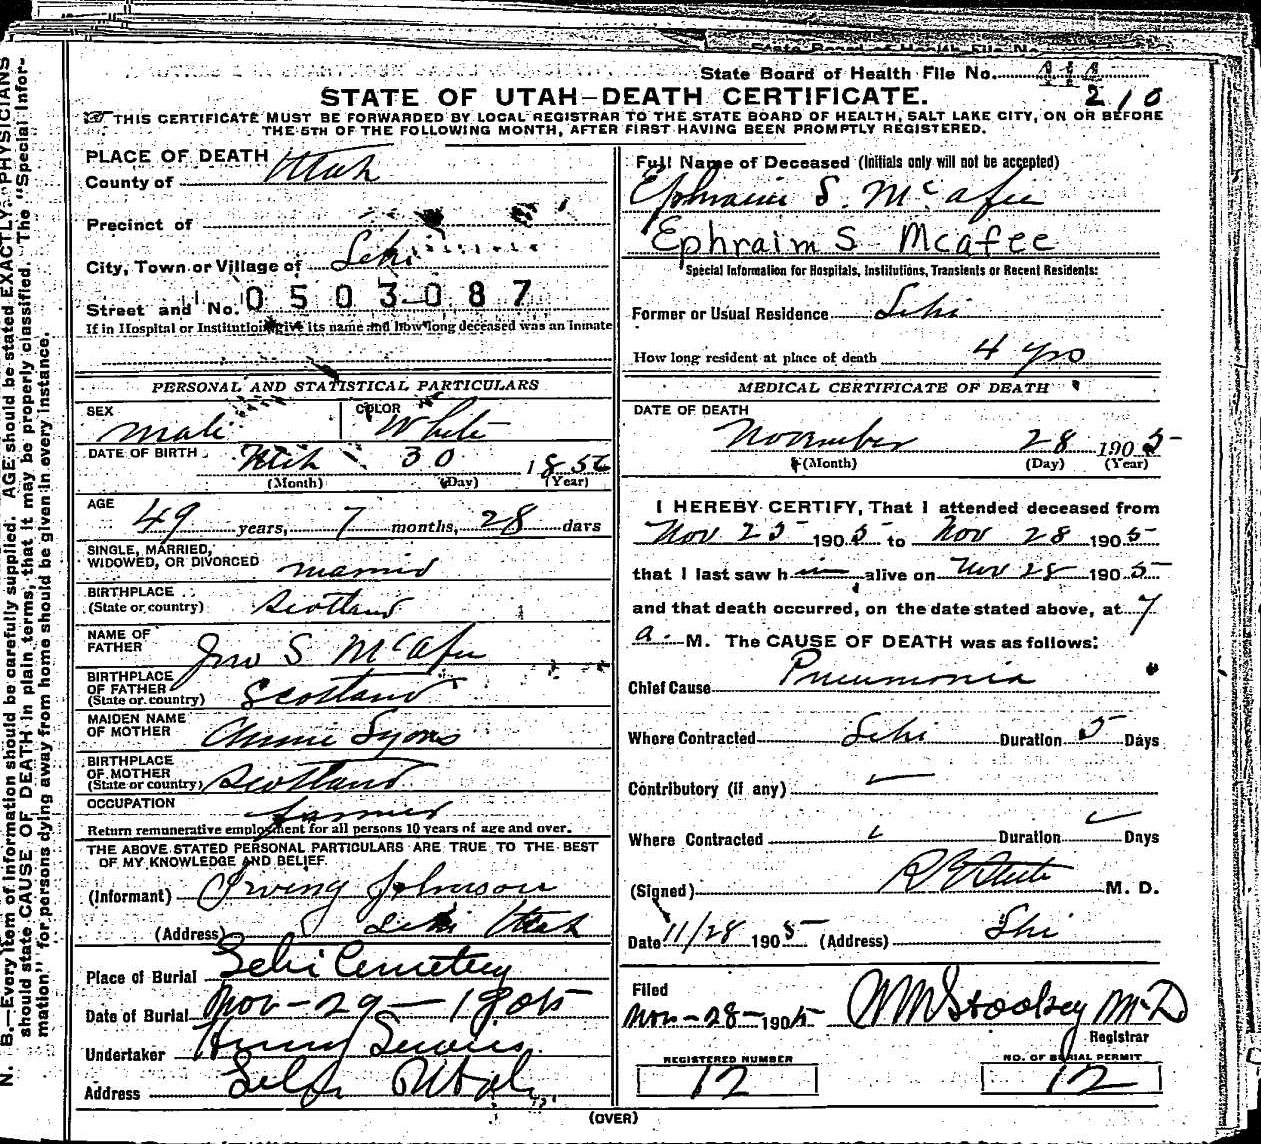 State Board of Health File No.
210
STATE OF UTAH—DEATH CERTIFICATE.
THIS CERTIFICATE MUST BE FORWARDED BY LOCAL REGISTRAR TO THE STATE BOARD OF HEALTH, SALT LAKE CITY, ON OR BEFORE
THE 5TH OF THE FOLLOWING MONTH, AFTER FIRST HAVING BEEN PROMPTLY REGISTERED.
PLACE OF DEATH
County of Utah
Precinct of
City, Town or Village of Lehi
Street and No. 0503087
If in Hospital or Institution give its name and how long deceased was an inmate
PERSONAL AND STATISTICAL PARTICULARS
SEX Male
COLOR White
DATE OF BIRTH 30 1856
(Month) (Day) (Year)
AGE 49 years, 7 months, 28 days
SINGLE, MARRIED,
WIDOWED, OR DIVORCED married
BIRTHPLACE
(State or country) Scotland
NAME OF
FATHER Jno S McAfee
BIRTHPLACE
OF FATHER
(State or country) Scotland
MAIDEN NAME
OF MOTHER Annie Lyons
BIRTHPLACE
OF MOTHER
(State or country) Scotland
OCCUPATION farmer
Return remunerative employment for all persons 10 years of age and over.
THE ABOVE STATED PERSONAL PARTICULARS ARE TRUE TO THE BEST
OF MY KNOWLEDGE AND BELIEF.
(Informant) Irving Johnson
(Address) Lehi Utah
Place of Burial Lehi Cemetery
Date of Burial Nov-29-1905
Undertaker
Address Lehi Utah
Full Name of Deceased (Initials only will not be accepted)
Ephraim S. McAfee
Ephraim S Mcafee
Special Information for Hospitals, Institutions, Transients or Recent Residents:
Former or Usual Residence Lehi
How long resident at place of death 4 yrs
MEDICAL CERTIFICATE OF DEATH
DATE OF DEATH
November 28 1905
(Month) (Day) (Year)
I HEREBY CERTIFY, That I attended deceased from
Nov 25 1905 to Nov 28 1905
that I last saw him alive on Nov 28 1905
and that death occurred, on the date stated above, at 7
a. M. The CAUSE OF DEATH was as follows:
Chief Cause Pneumonia
Where Contracted Lehi Duration 5 Days
Contributory (if any)
Where Contracted Duration Days
(Signed) M. D.
Date 11/28 1905 (Address) Lehi
Filed
Nov-28-1905 WM Stookey M.D
Registrar
REGISTERED NUMBER
12
NO. OF BURIAL PERMIT
12
(OVER)
N. B.—Every item of information should be carefully supplied. AGE should be stated EXACTLY. PHYSICIANS
should state CAUSE OF DEATH in plain terms, that it may be properly classified. The "Special Infor-
mation" for persons dying away from home should be given in every instance.